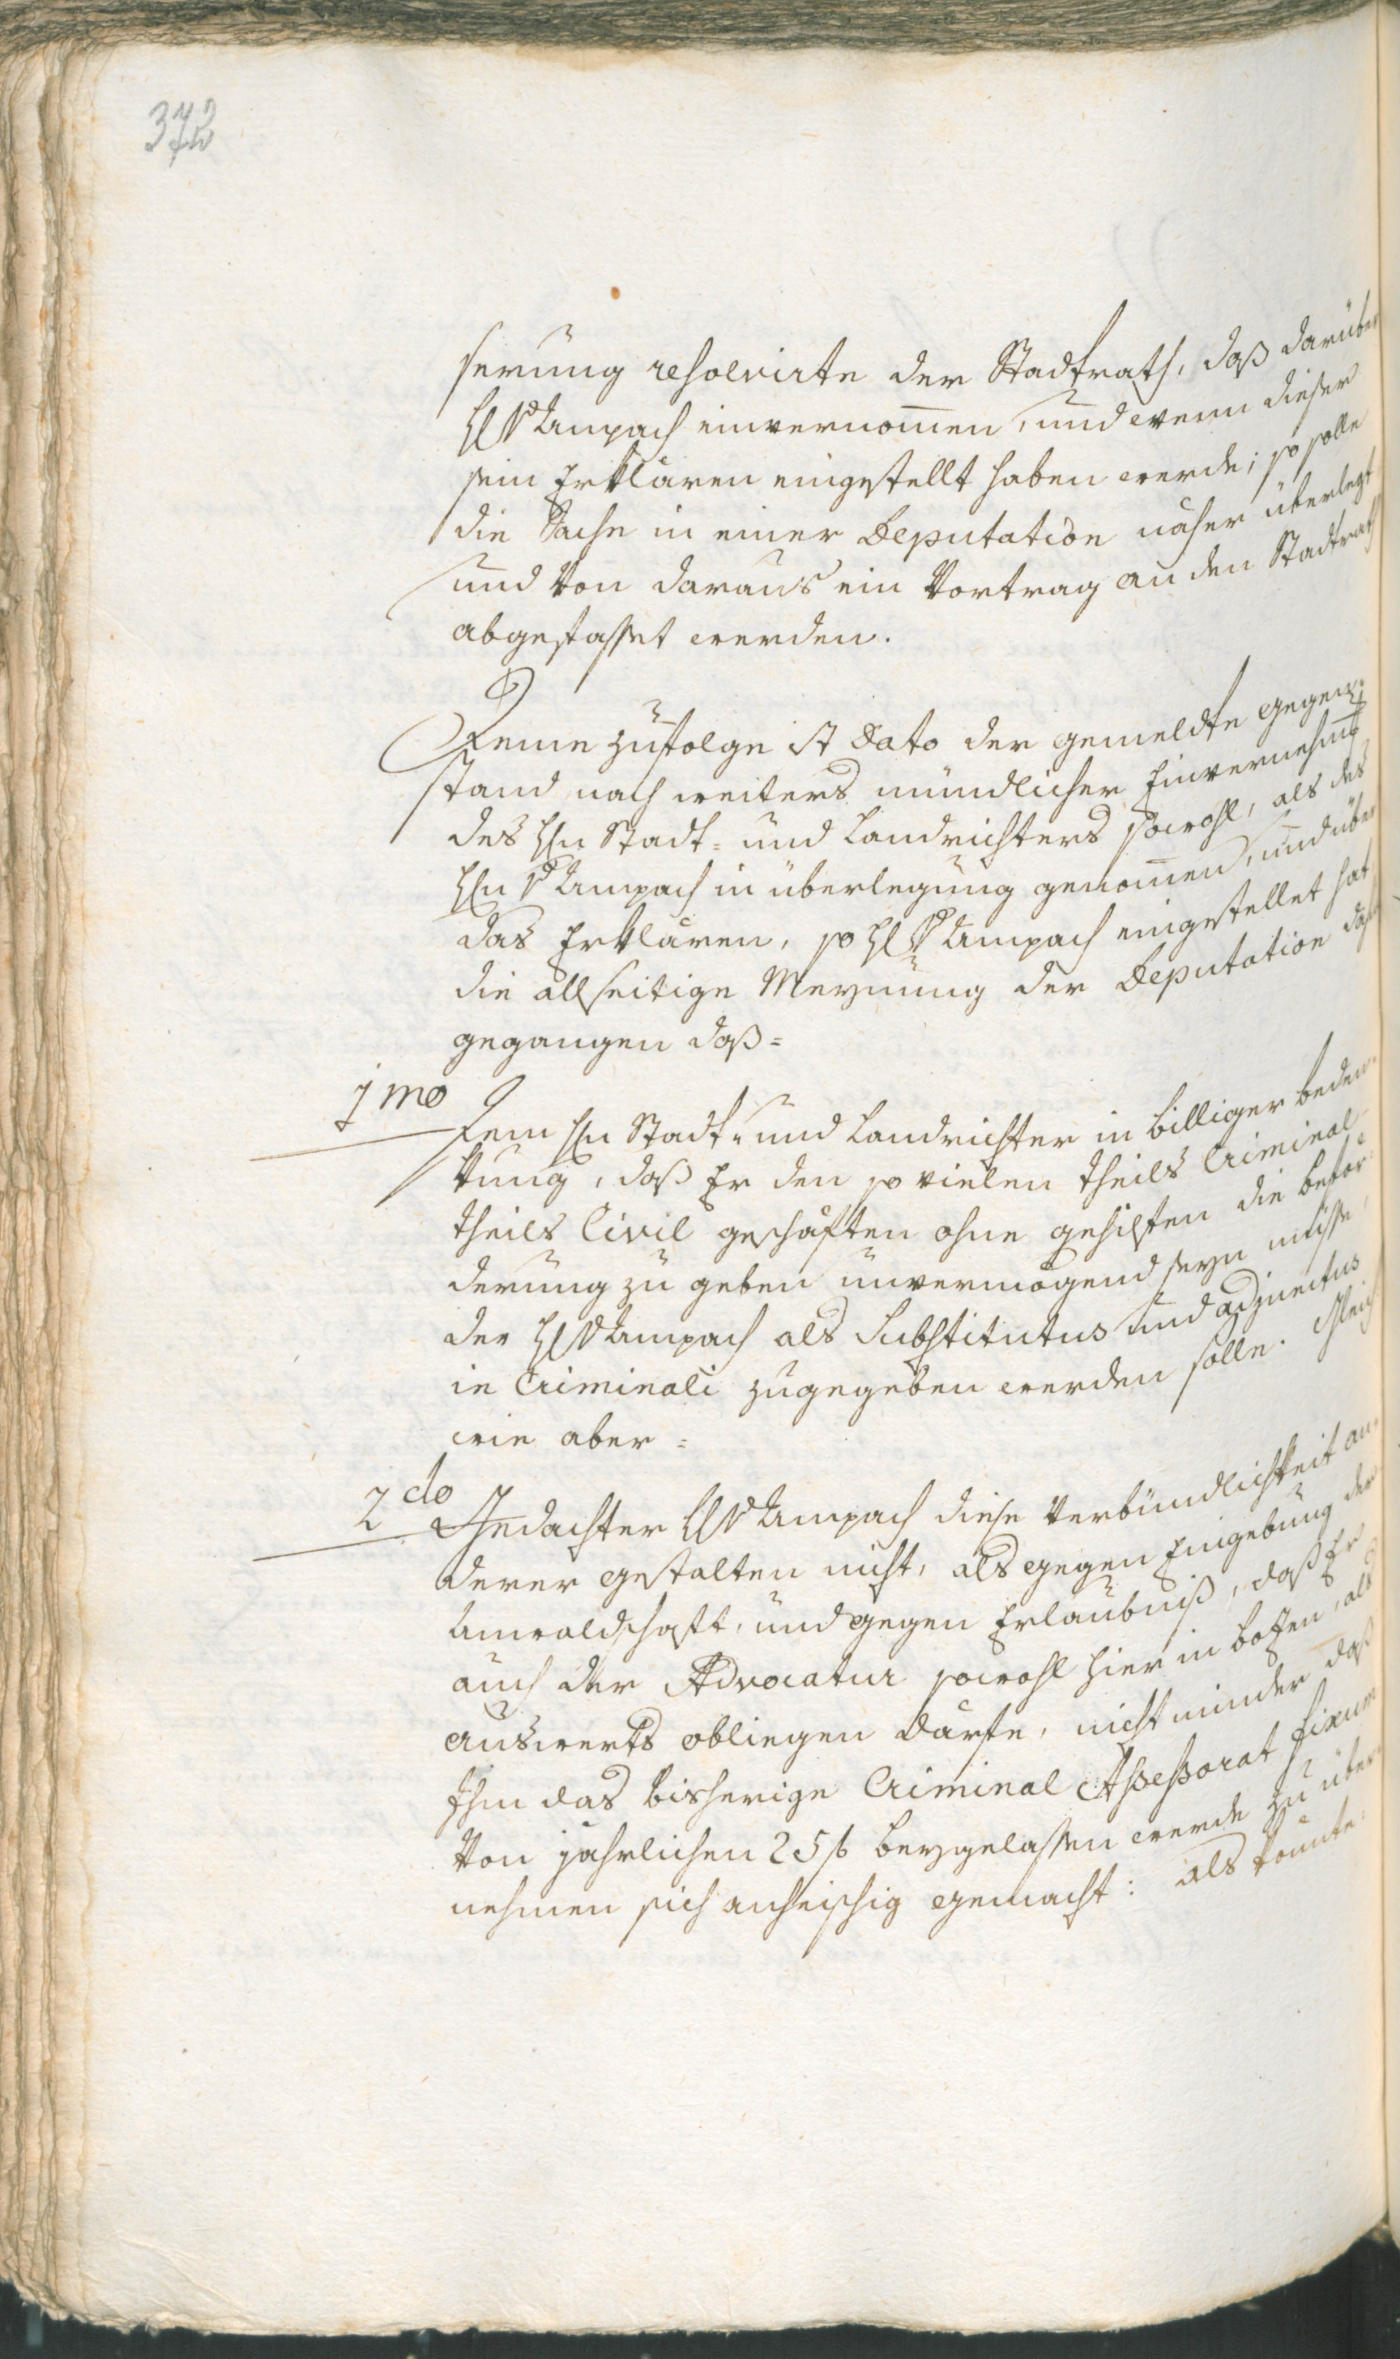 372
serung resolvirte der Stadtrath, daß darüber
H. Dr. Ampach einvernom̄en, und wenn dieser
sein Erklären eingestellt haben werde; so solle
die Sache in einer Deputation näher überlegt
und von daraus ein Vortrag an den Stadtrath
abgefasset werden.
Deme zufolge ist dato der gemeldte gegen-
stand nach weiters mündlicher Einvernehmung
des Hn Stadt- und Landrichters sowohl, als des
Hn Dr. Ampach in überlegung genom̄en, und über
das Erklären, so H. Dr. Ampach eingestellet hat
die allseitige Meynung der Deputation dahin
gegangen daß=
1mo
Dem Hn Stadt- und Landrichter in billiger beden-
kung, daß Er den so vielen theils Criminal
theils Civil geschäften ohne gehilfen die beför-
derung zu geben unvermögend seyn müsse,
der H. Dr. Ampach als Substitutus und adjunctus
in Criminali zugegeben werden solle. Gleich
wie aber =
2do
Gedachter H. Dr. Ampach diese Verbündlichkeit an-
derer gestalten nicht, als gegen Eingebung der
Anwaldschaft, und gegen Erlaubniß, daß Er
auch der Advocatur sowohl hier in botzen, als
auswerts obliegen därfe, nicht minder daß
Ihm das bisherige Criminal Aßeßorat fixum
von jährlichen 25 f beygelassen werde zu über-
nehmen sich anheischig gemacht: als könnte